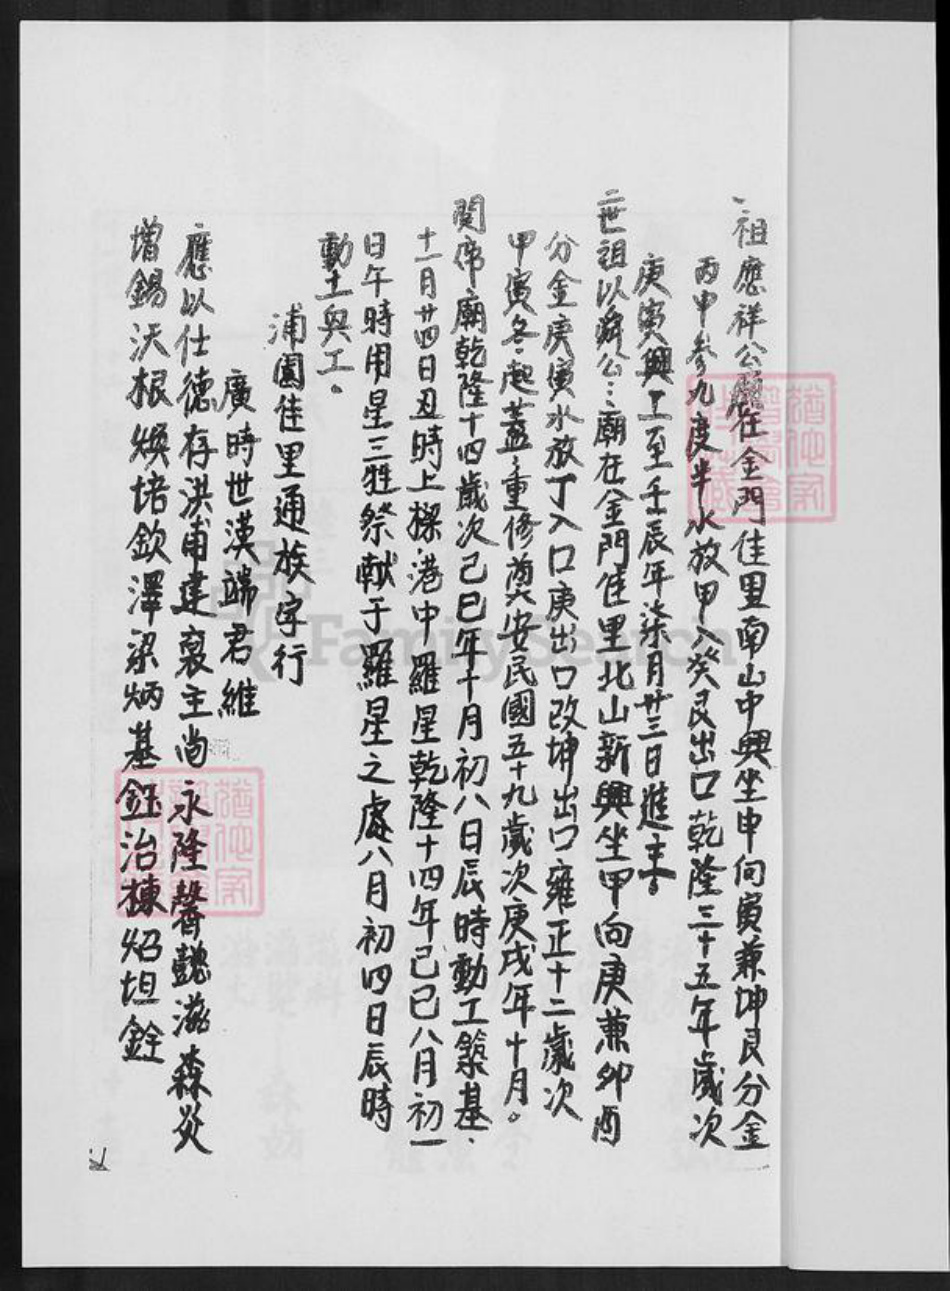 祖應祥公廳在金門佳里南山中興坐申向寅兼坤艮分金
丙申叁九度半水放甲入癸艮出口乾隆三十五年歲次
庚寅興工至壬辰年柒月廿三日進主。
二世祖以舜公:廟在金門佳里北山新興坐甲向庚兼卯酉
分金庚寅水放丁入口庚出口改坤出口雍正十二歲次
甲寅冬起蓋重修奠安民國五十九歲次庚戌年十月。
関帝廟乾隆十四歲次己巳年十月初八日辰時動工築基.
十一月廿四日丑時上樑.港中羅星乾隆十四年己巳八月初一
日午時用星三牲祭献于羅星之處八月初四日辰時
動土與工。
浦園佳里通族字行
廣時世漢端君維
應以仕德存洪甫建裒主尚永隆馨懿滋森炎
增錫沃根煥培欽澤梁炳基鈺治棟炤坦銓
FamilySearch